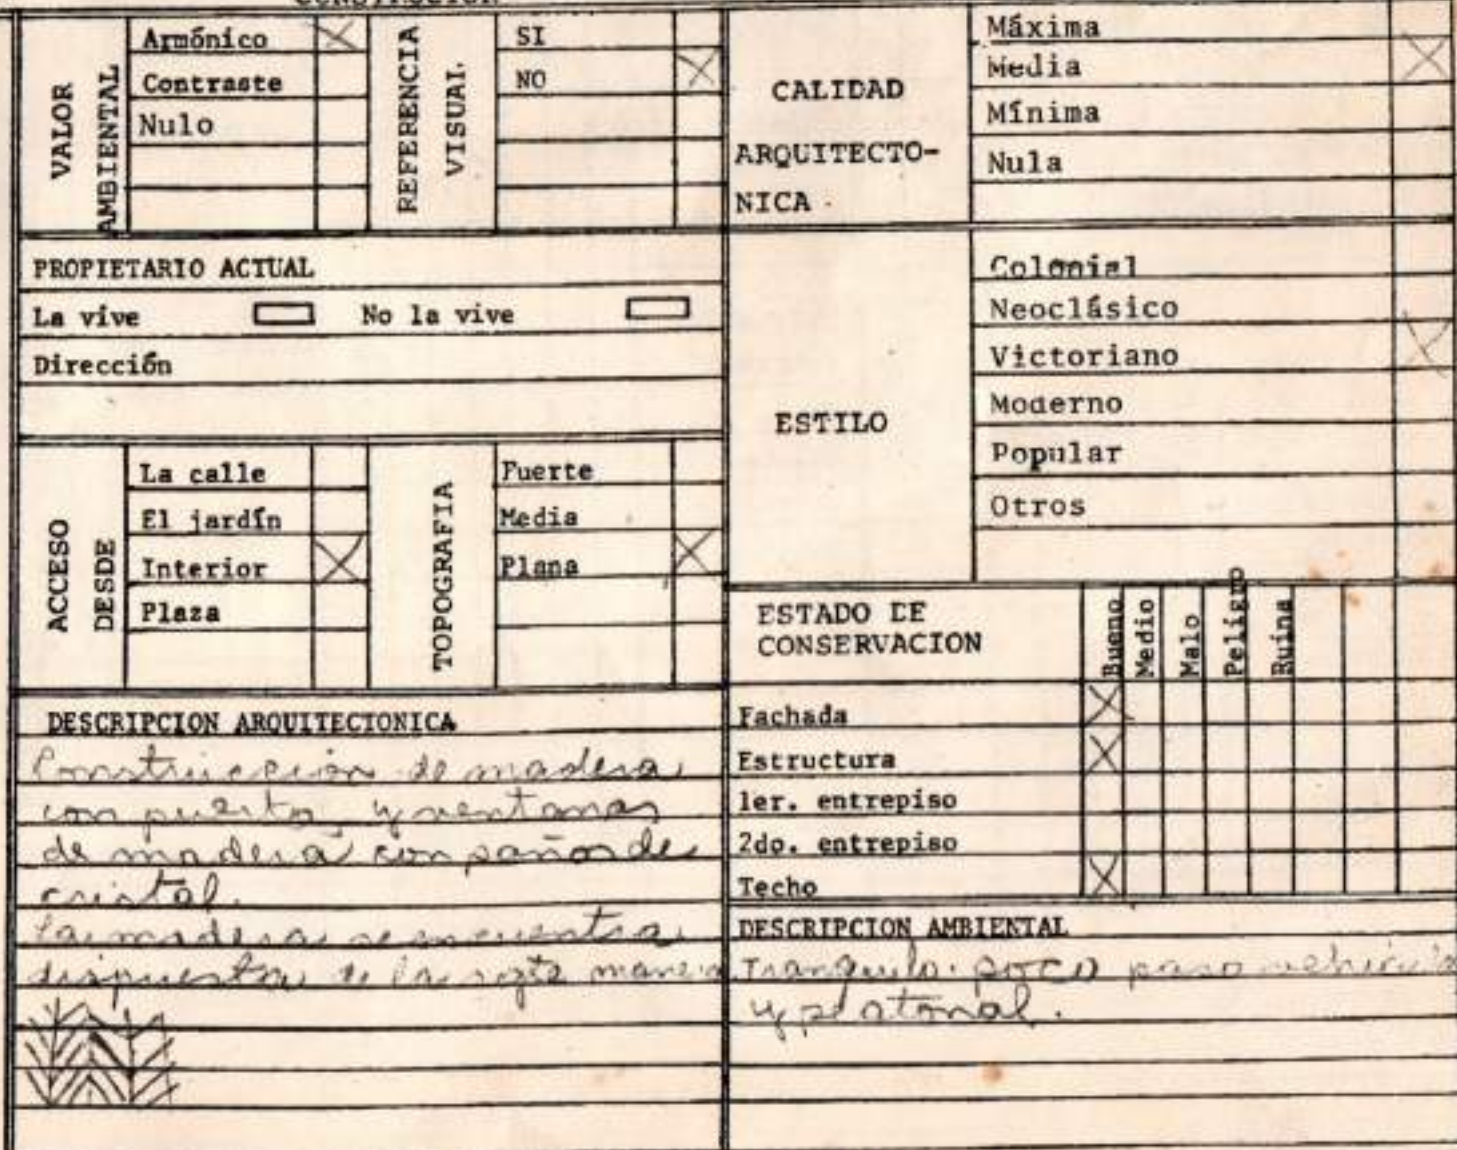 CONSTRUCCION
VALOR AMBIENTAL
Armónico X
Contraste
Nulo
REFERENCIA VISUAL
SI
NO X
CALIDAD
ARQUITECTO-
NICA
Máxima
Media X
Mínima
Nula
PROPIETARIO ACTUAL
La vive No la vive
Dirección
ESTILO
Colonial
Neoclásico
Victoriano X
Moderno
Popular
Otros
ACCESO DESDE
La calle
El jardín
Interior X
Plaza
TOPOGRAFIA
Fuerte
Media
Plana X
ESTADO DE
CONSERVACION
Bueno
Medio
Malo
Peligro
Ruina
Fachada X
Estructura X
1er. entrepiso
2do. entrepiso
Techo X
DESCRIPCION ARQUITECTONICA
Construcción de madera
con puerta y ventanas
de madera con paños de
cristal.
La madera se encuentra
dispuesta de la sgte manera
DESCRIPCION AMBIENTAL
Tranquilo. poco paso vehicula
y peatonal.